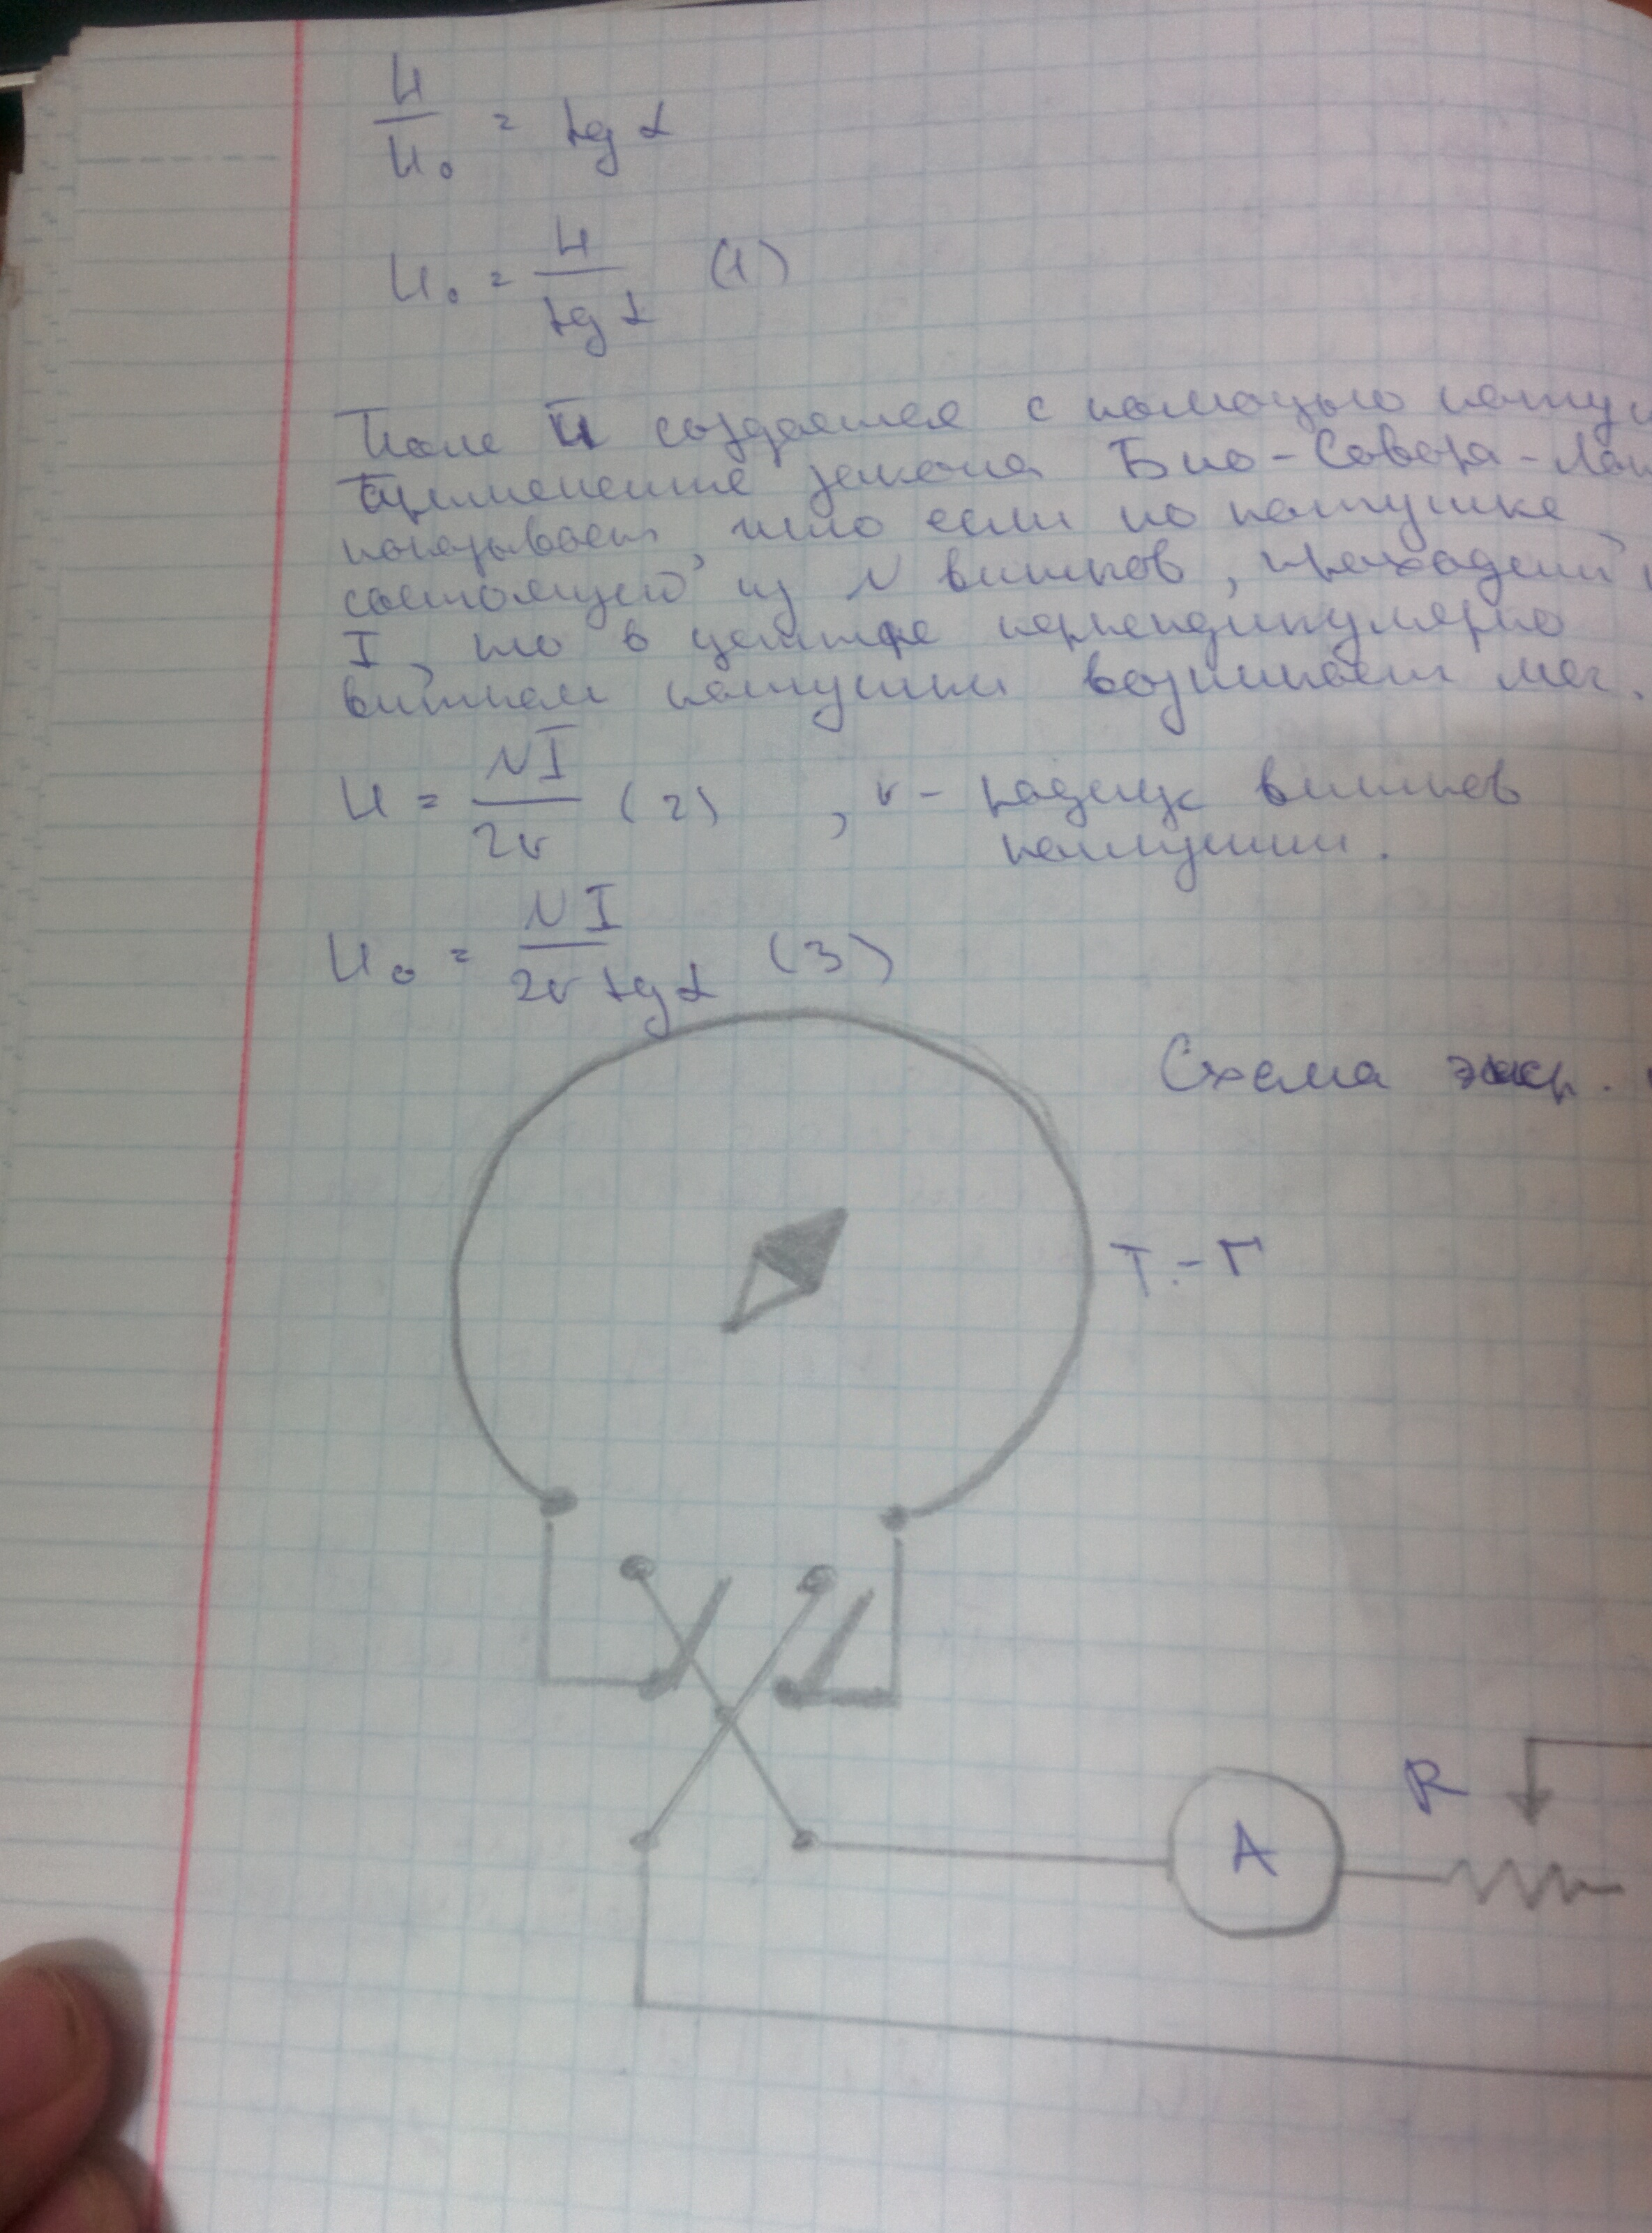 H/H₀ = tg α
H₀ = H/tg α (1)
Поле H создается с помощью кату
Применение закона Био-Савара-Лап
показывает, что если по катушке
состоящей из N витков, проходит
I, то в центре перпендикулярно
виткам катушки возникает маг.
H = NI/2r (2) , r - радиус витков
катушки.
H₀ = NI/2r tg α (3)
Схема экспр.
Т.-Г
R
A